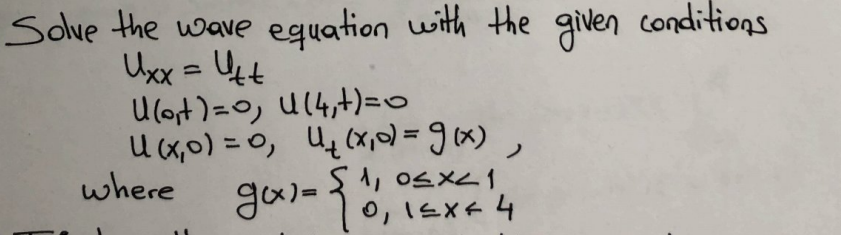 Solve the wave equation with the given conditions
Uxx = Utt
U(0,t)=0, U(4,t)=0
U(x,0)=0, Ut(x,0)=g(x),
where g(x)= { 1, 0≤x<1
0, 1≤x<4